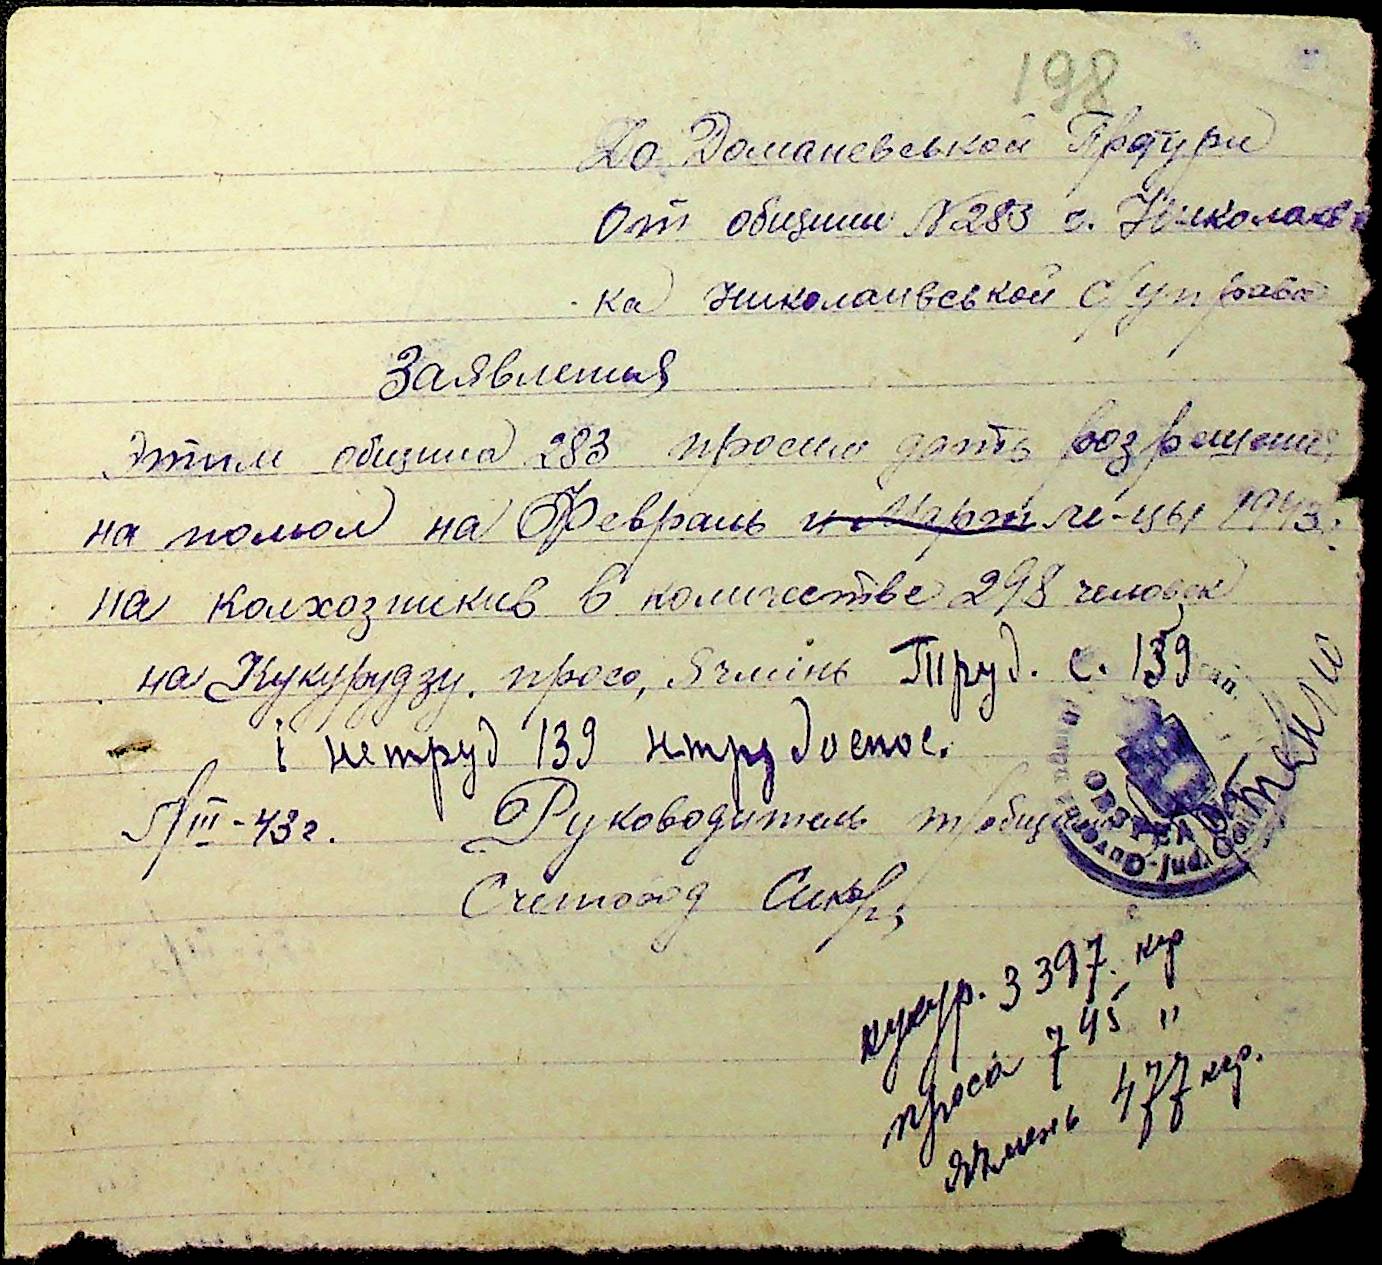 198
До Доманевськой Претури
От общины N283 с. Николаев
ка Николаивськой с/управа
Заявления
Этим община 283 просим дать розрешение
на помол на Февраль и Март ме-цы 1943.
на колхозникив в количестве 298 человек
на Кукурудзу, просо, Ячмінь Труд. с. 139
і нетруд 139 нтрудоспос.
5/III-43г. Руководитель
Счетовод
кукур. 3397 кгр
проса 745 "
Ячмень 477 кгр.